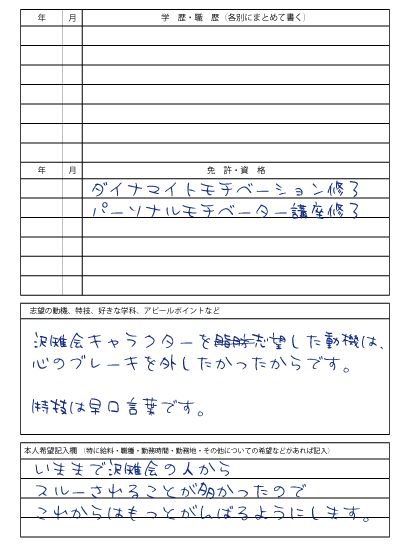 年 月 学 歴・職 歴（各別にまとめて書く）
年 月 免 許・資 格
ダイナマイトモチベーション修了
パーソナルモチベーター講座修了
志望の動機、特技、好きな学科、アピールポイントなど
沢雉会キャラクターを脂肪志望した動機は、
心のブレーキを外したかったからです。
特技は早口言葉です。
本人希望記入欄（特に給料・職種・勤務時間・勤務地・その他についての希望などがあれば記入）
いままで沢雉会の人から
スルーされることが多かったので
これからはもっとがんばるようにします。